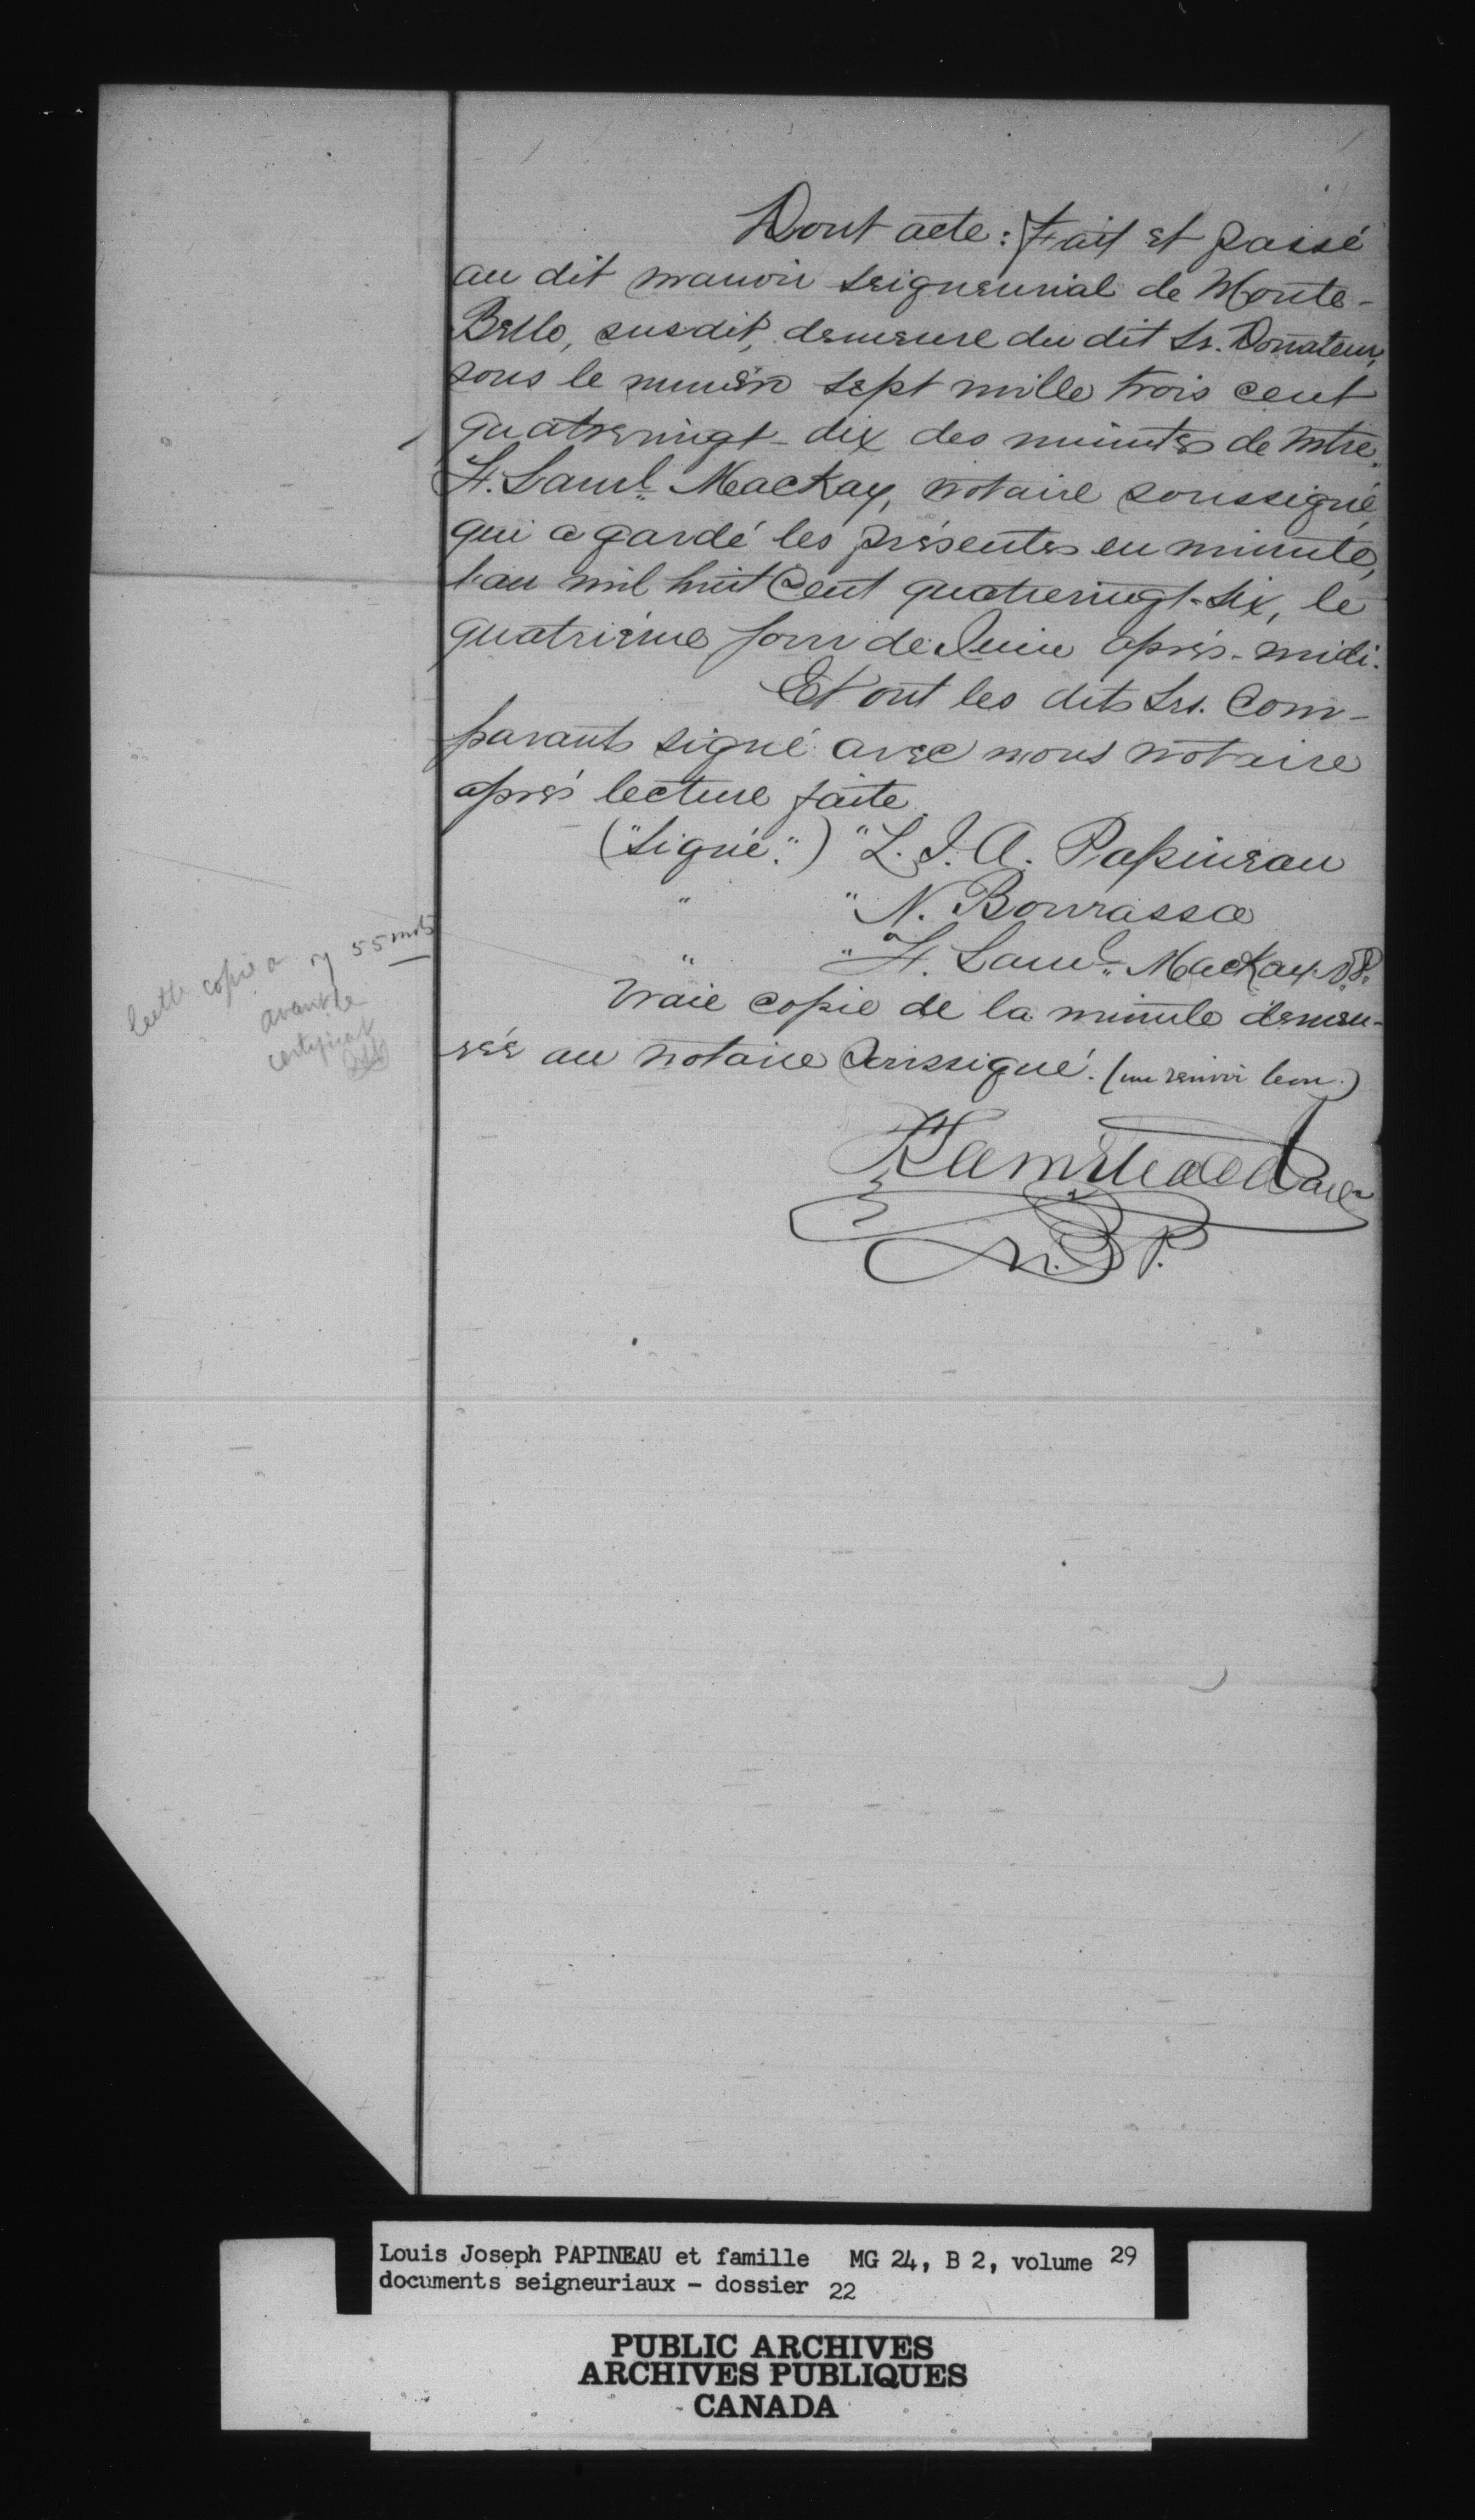 Dont acte: Fait et passé
au dit manoir seigneurial de Monte-
Bello, susdit, demeure du dit Sr. Donateur,
sous le numéro sept mille trois cent
quatrevingt-dix des minutes de Mtre.
F. Saml. MacKay, notaire soussigné
qui a gardé les présentes en minute,
l'an mil huit Cent quatrevingt-six, le
quatrième jour de Juin après-midi.
Et ont les dits Srs. Com-
parants signé avec nous notaire
après lecture faite.
("Signé".) "L. J. A. Papineau
" "N. Bourassa
" "F. Saml. MacKay N.P.
Vraie copie de la minute demeu-
rée au notaire soussigné. (un renvoi bon.)
N.P.
Cette copie a 55 mots
avant le
certificat
Louis Joseph PAPINEAU et famille MG 24, B 2, volume 29
documents seigneuriaux - dossier 22
PUBLIC ARCHIVES
ARCHIVES PUBLIQUES
CANADA